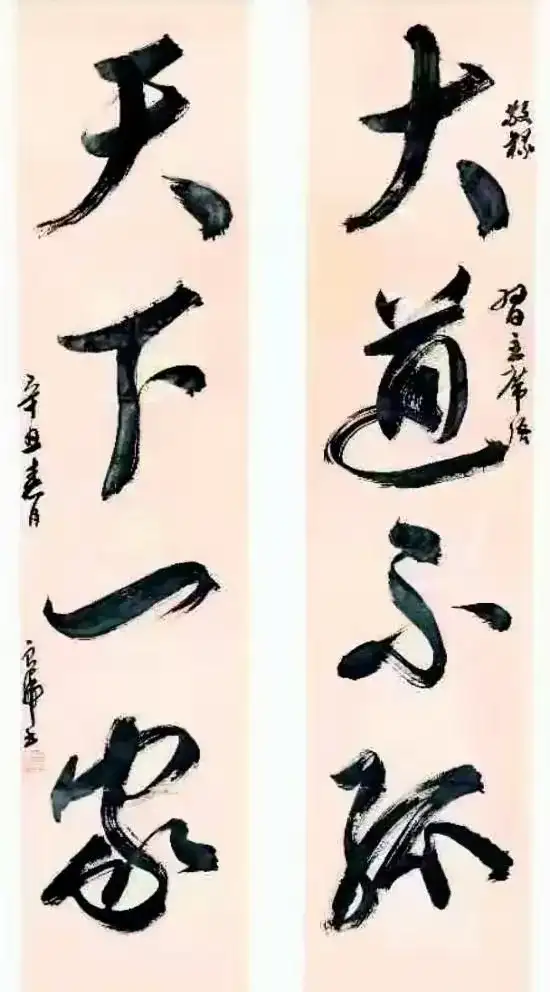 大道不孤
敬録
習主席語
天下一家
辛丑春月